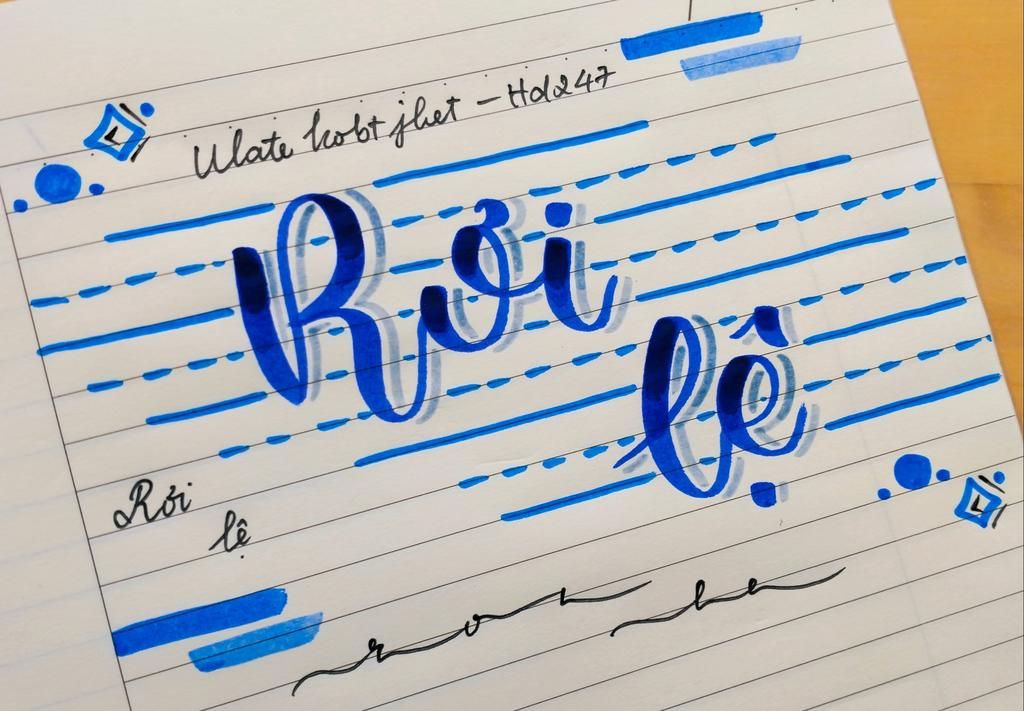 Ulate kobt jhet - Hd247
Rơi
lệ
Rơi
lệ